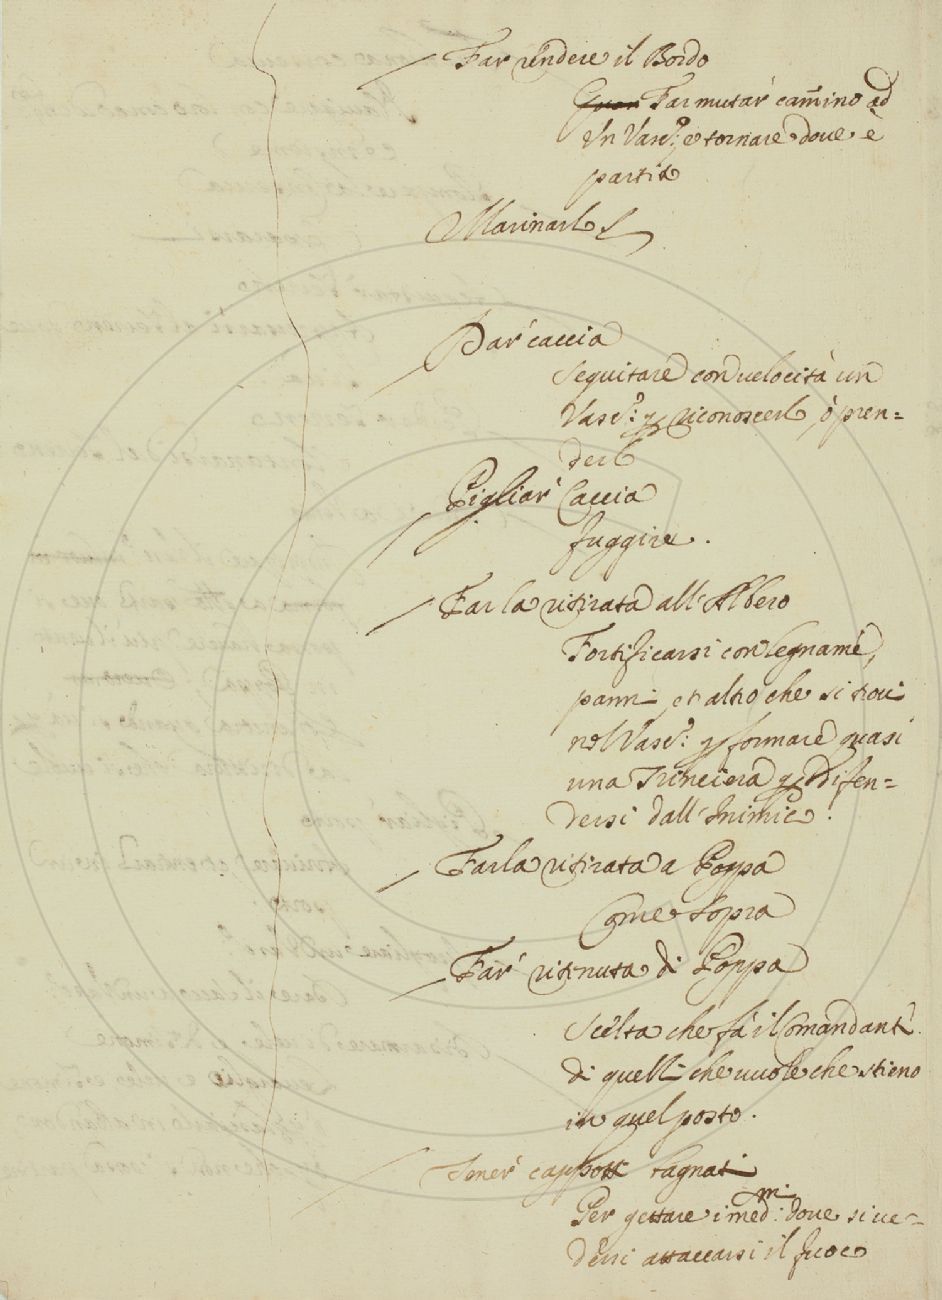 Far rendere il Bordo
Far mutar camino ad
Un Vasc.o, e tornare doue è
partito
Marinarlo
Dar caccia
Seguitare con uelocità un
Vasc.o: per riconoscerlo, ò pren=
derlo
Pigliar Caccia
fuggire.
Far la ritirata all'Albero
Fortificarsi con legnamè,
panni, et altro che si troui
nel Vasc.o: per formare quasi
una Trinciera per difen=
dersi dall'Inimico.
Far la ritirata a Poppa
Come Sopra
Far ritenuta di Poppa
Scelta che fà il Comandante
di quelli che uuole che stieno
in quel posto.
Tener cappotti bagnati
Per gettare imed.mi: doue si ue=
dessi attaccarsi il fuoco